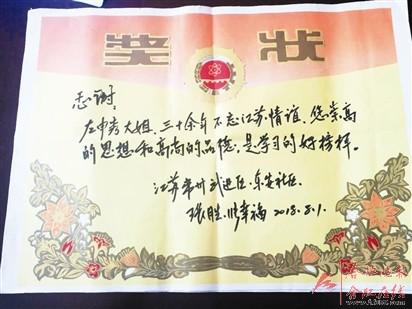 奖状
感谢:
左中秀大姐,三十余年不忘江苏情谊,您崇高
的思想和高尚的品德,是学习的好榜样。
江苏常州武进区
幸福 2018.8.1.